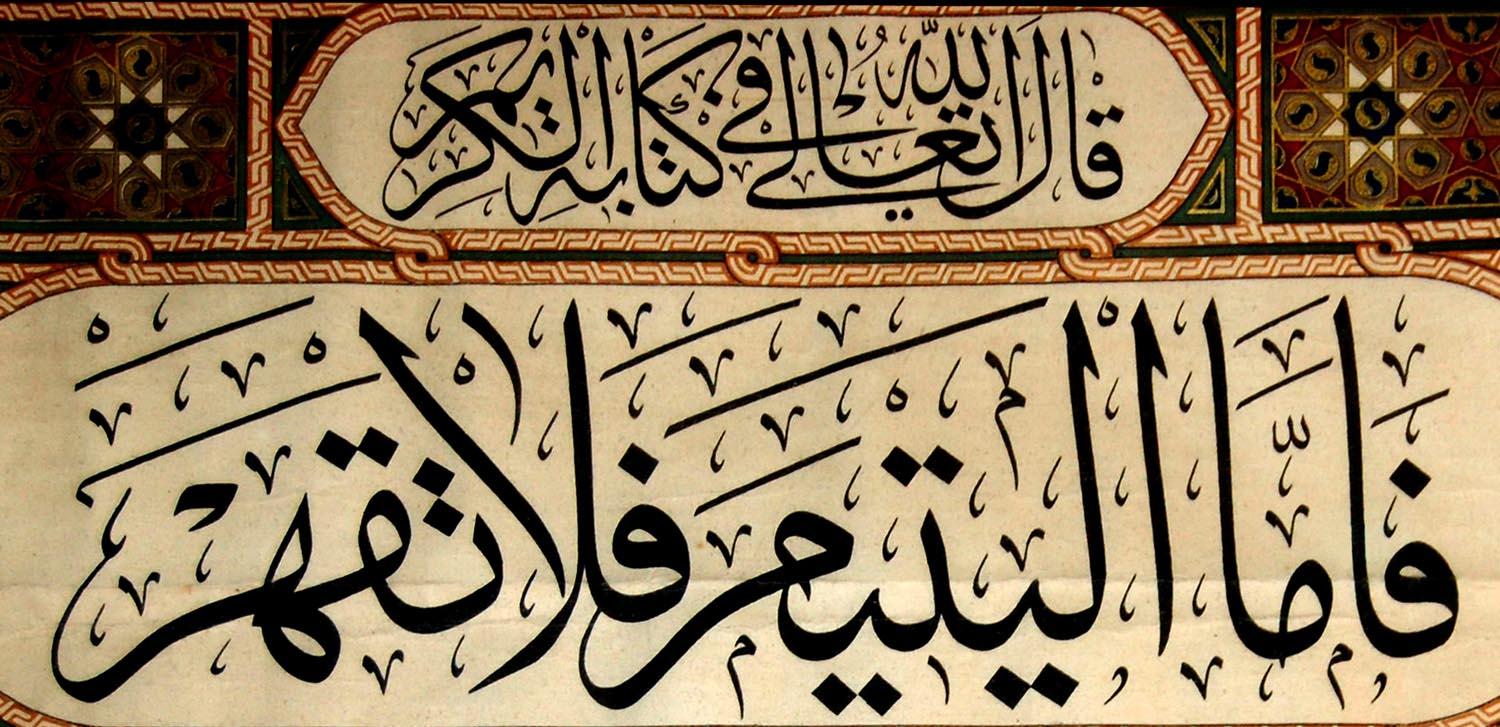 قال الله تعالى في كتابه الكريم
فَأَمَّا الْيَتِيمَ فَلَا تَقْهَرْ